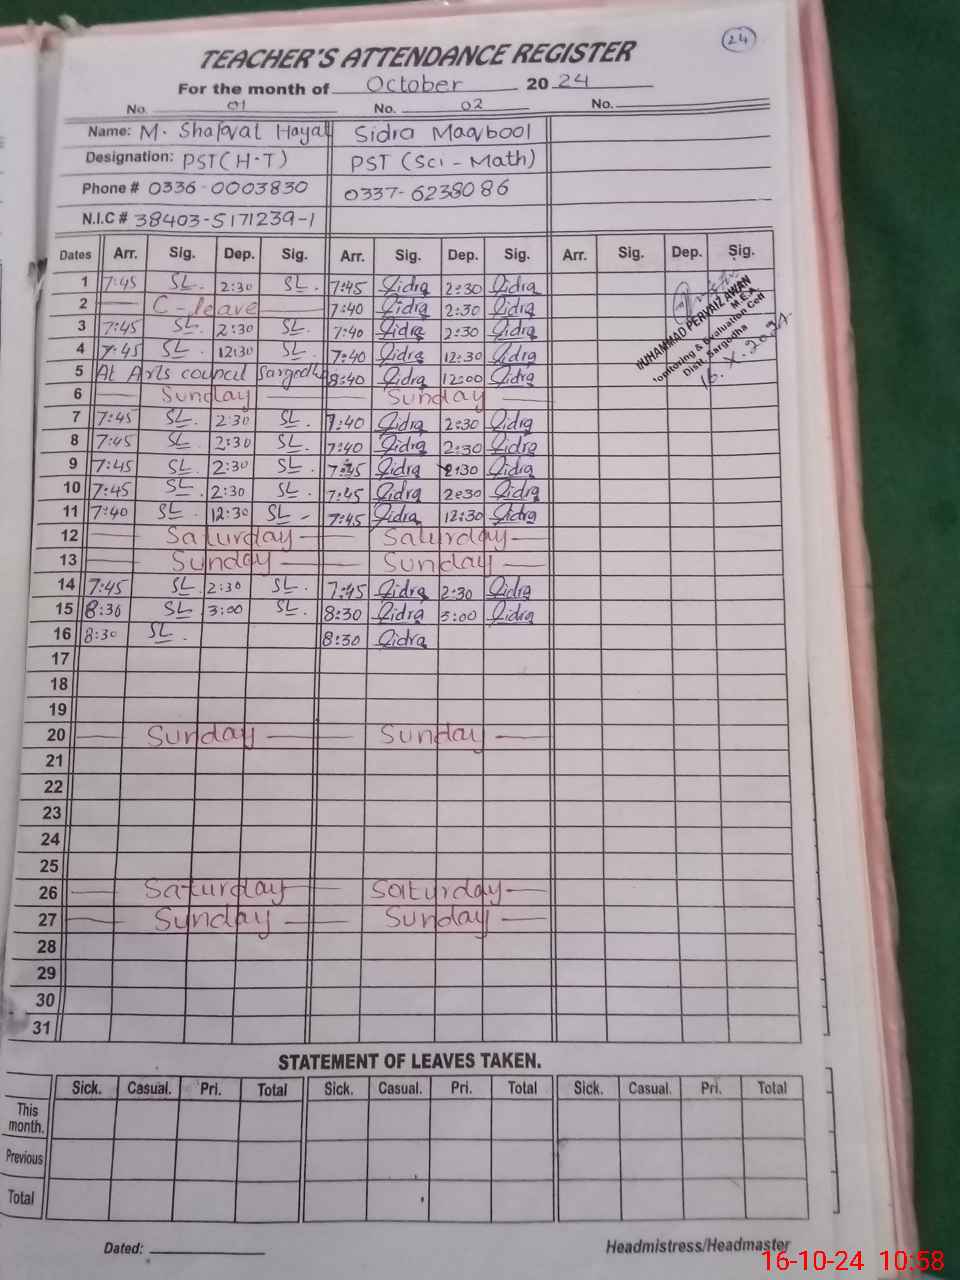 24
TEACHER'S ATTENDANCE REGISTER
For the month of October 2024
No. 01 No. 02 No.
Name: M. Shafqat Hayat Sidra Maqbool
Designation: PST(H-T) PST (Sci - Math)
Phone # 0336-0003830 0337-6238086
N.I.C # 38403-5171239-1
Dates Arr. Sig. Dep. Sig. Arr. Sig. Dep. Sig. Arr. Sig. Dep. Sig.
1 7:45 SL. 2:30 SL. 7:45 Sidra 2:30 Sidra
2 C-leave 7:40 Sidra 2:30 Sidra
3 7:45 SL. 2:30 SL. 7:40 Sidra 2:30 Sidra
4 7:45 SL. 12:30 SL. 7:40 Sidra 12:30 Sidra
5 At Arts council Sargodha 8:40 Sidra 12:00 Sidra
6 Sunday Sunday
7 7:45 SL. 2:30 SL. 7:40 Sidra 2:30 Sidra
8 7:45 SL. 2:30 SL. 7:40 Sidra 2:30 Sidra
9 7:45 SL. 2:30 SL. 7:45 Sidra 2:30 Sidra
10 7:45 SL. 2:30 SL. 7:45 Sidra 2:30 Sidra
11 7:40 SL. 12:30 SL- 7:45 Sidra 12:30 Sidra
12 Saturday Saturday
13 Sunday Sunday
14 7:45 SL 2:30 SL. 7:45 Sidra 2:30 Sidra
15 8:30 SL 3:00 SL. 8:30 Sidra 3:00 Sidra
16 8:30 SL. 8:30 Sidra
17
18
19
20 Sunday Sunday
21
22
23
24
25
26 Saturday Saturday
27 Sunday Sunday
28
29
30
31
MUHAMMAD PERVAIZ AWAN
M.E.A.
Monitoring & Evaluation Cell
Distt. Sargodha
16.X.2024
STATEMENT OF LEAVES TAKEN.
Sick. Casual. Pri. Total Sick. Casual. Pri. Total Sick. Casual. Pri. Total
This month.
Previous
Total
Dated: Headmistress/Headmaster
16-10-24 10:58